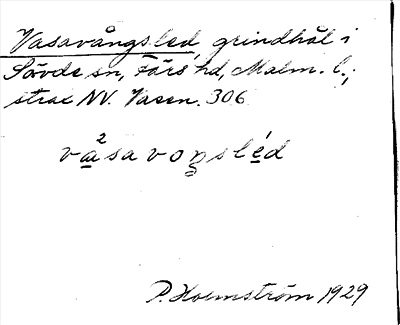 Vasavångsled, grindhål i
Sövde sn, Färs hd, Malm. l.;
strax NV. Vasen. 306
va²savoŋsléd
P. Holmström 1929